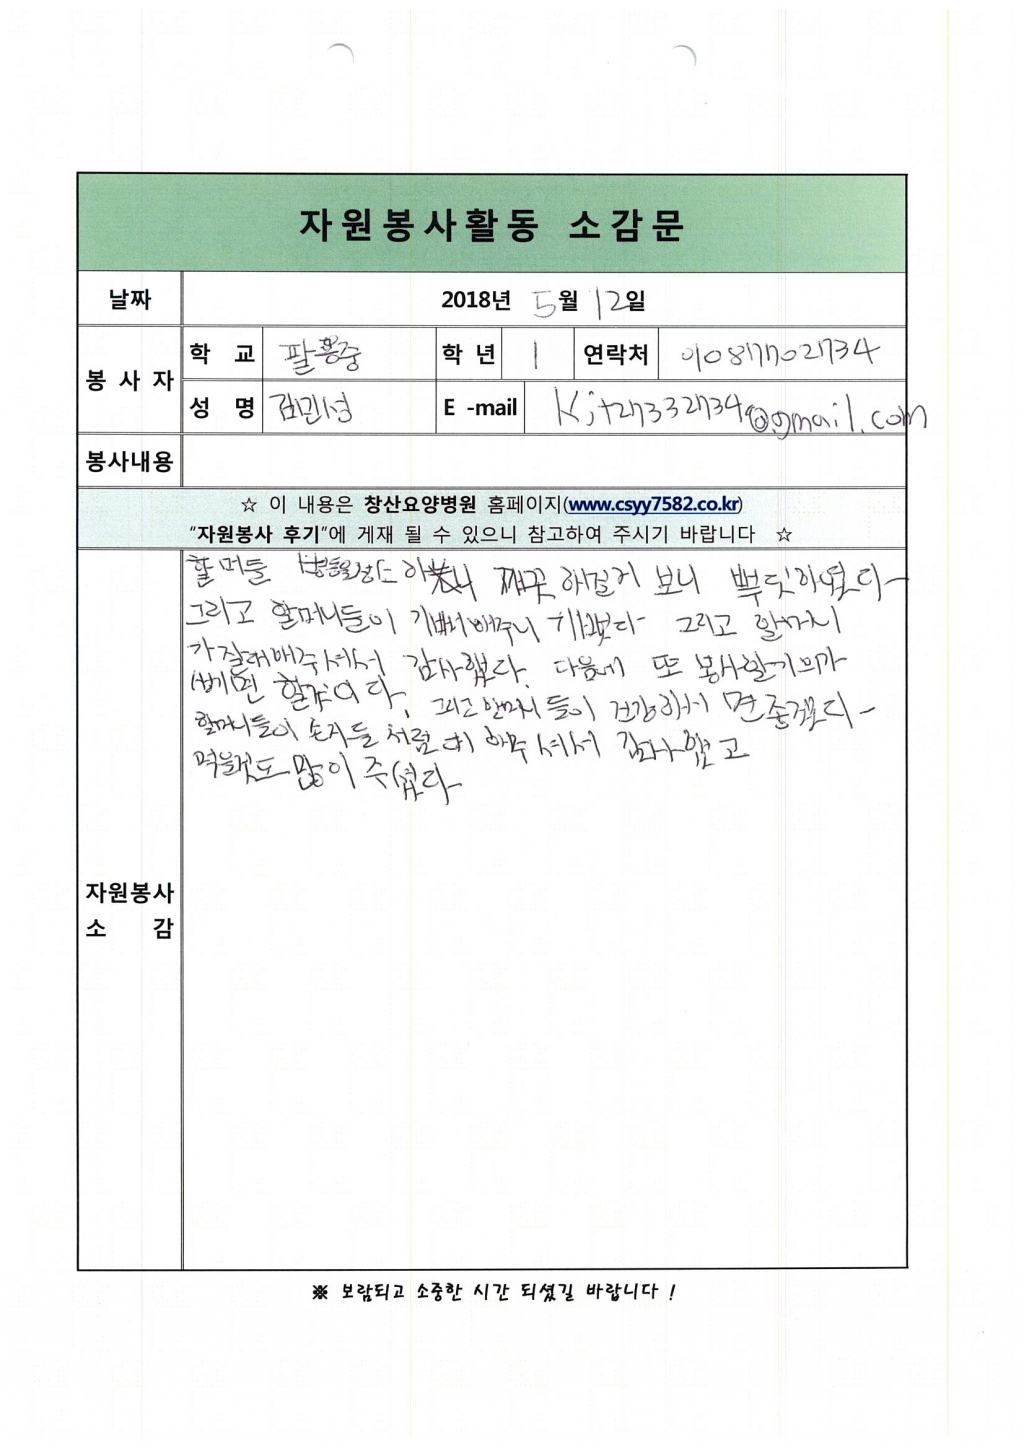 자원봉사활동 소감문
날짜 2018년 5월 12일
봉사자
학 교 팔룡중 학년 1 연락처 01087702734
성 명 김민성 E-mail kjt27332734@gmail.com
봉사내용
☆ 이 내용은 창산요양병원 홈페이지(www.csyy7582.co.kr)
"자원봉사 후기"에 게재 될 수 있으니 참고하여 주시기 바랍니다 ☆
할머들 병동을 청소 하니 깨끗 해걸거 보니 뿌듯하였다
그리고 할머니들이 기뻐해주니 기뻤다 그리고 할머니
가 잘대해주셔서 감사했다. 다음에 또 봉사할기회가
생기면 할것이다. 그리고 할머니들이 건강하셔 면 좋겠다
할머니들이 손자들 처럼 대 해주 셔서 감사 했고
먹을것도 많이 주셨다
자원봉사
소 감
※ 보람되고 소중한 시간 되셨길 바랍니다 !